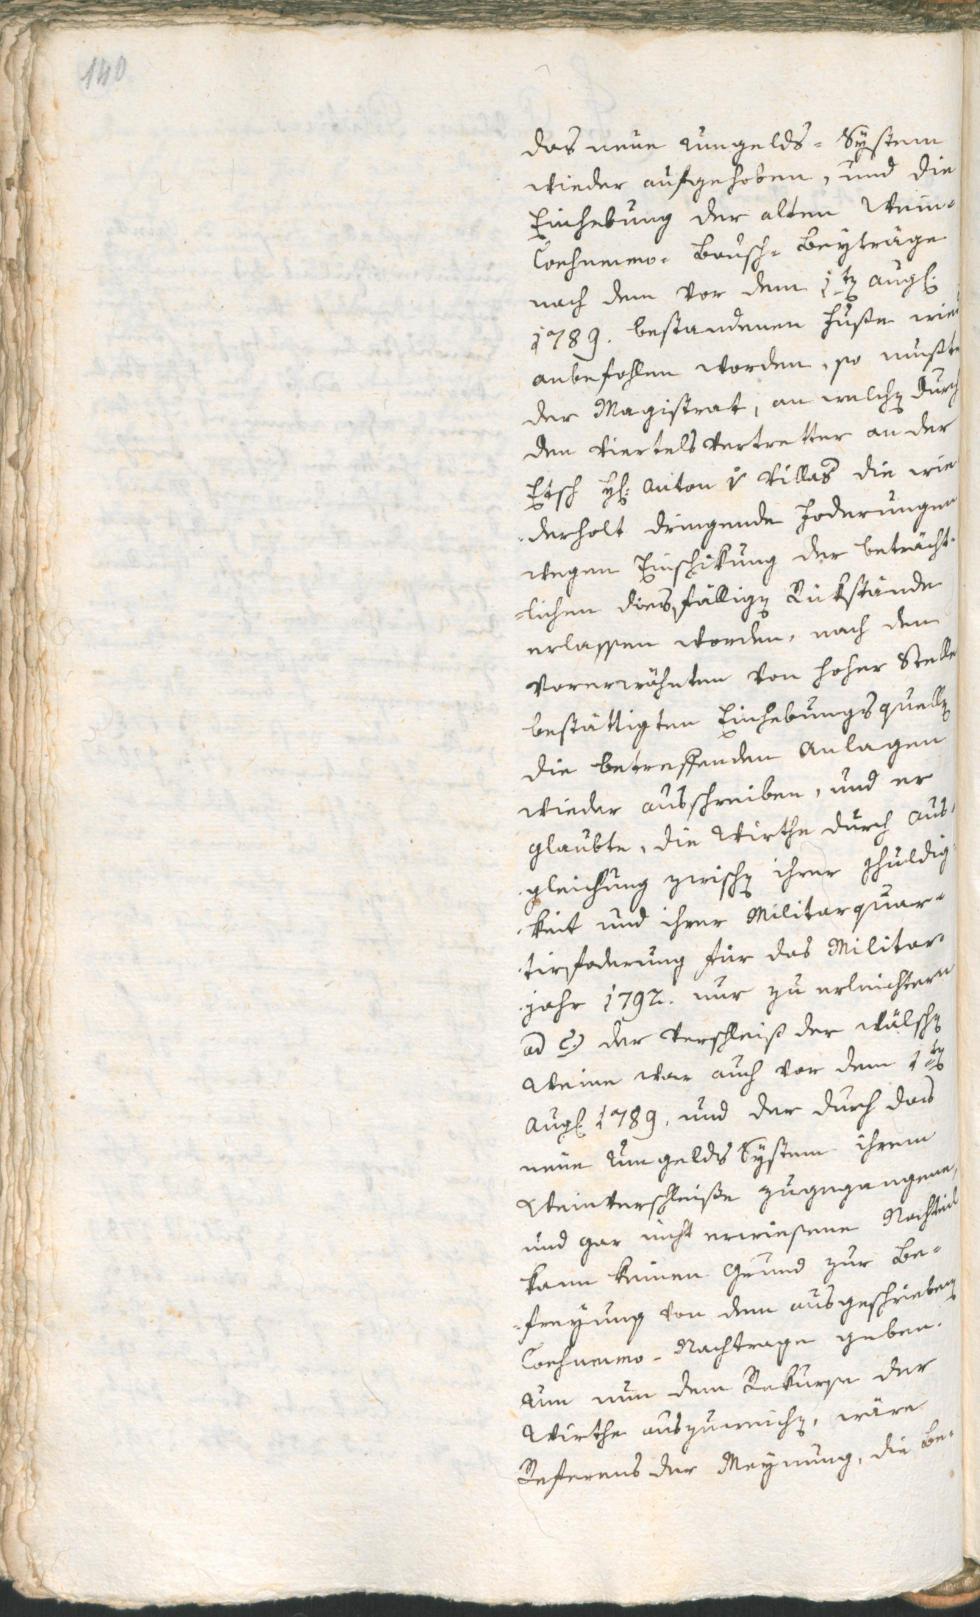 140
das neue Umgelds-System
wieder aufgehoben, und die
Einhebung der alten Wein-
Bausch-Beyträge
nach dem vor dem 1ten Aug.
1789. bestandenen Fuße wie
anbefohlen worden, so mußte
der Magistrat, an welchen durch
den Viertelsvertretter an der
Etsch H: Anton v Villas die wie
derholt dringende Foderungen
wegen Einschikung der beträcht-
lichen diesfälligen Rükstände
erlassen worden, nach dem
vorerwähnten von hoher Stelle
bestättigten Einhebungsquellen
die betreffenden Anlagen
wieder ausschreiben, und er
glaubte, die Wirthe durch Aus-
gleichung zwischen ihrer Schuldig-
keit und ihrer Militarquar-
tirsfoderung für das Militar-
jahr 1792. nur zu erleichtern
ad C) der Verschleiß der wälschen
Weine war auch vor dem 1ten
Aug 1789. und der durch das
neue Umgelds System ihrem
Weinverschleiße zugegangene,
und gar nicht erwiesene Nachteil
kann keinen Grund zur Be-
freyung von dem ausgeschriebenen
Nachtrage geben.
Um nun dem Rekurse der
Wirthe auszuweichen, wäre
Referens der Meynung, die Be-